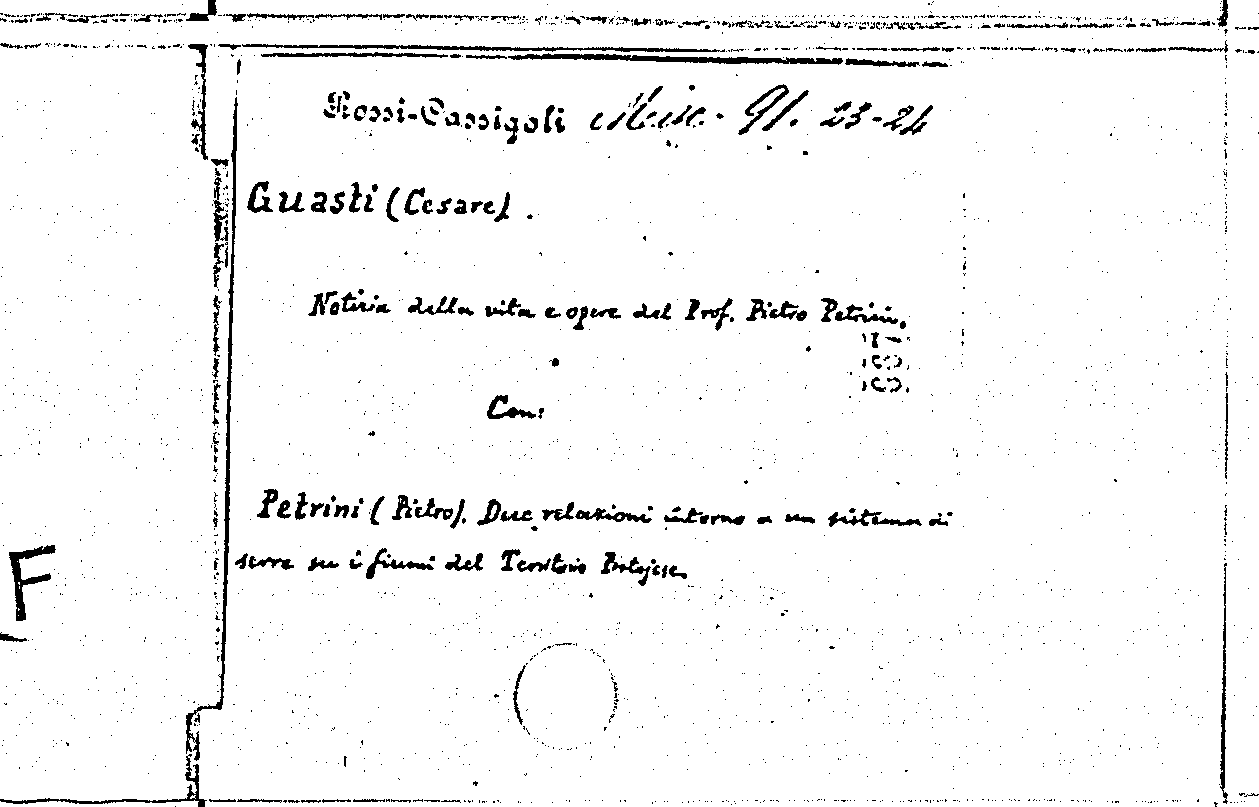 Rossi-Cassigoli Misc. 91. 23-24
Guasti (Cesare).
Notizia della vita e opere del Prof. Pietro Petrini.
Con:
Petrini (Pietro). Due relazioni intorno a un sistema di
serre su i fiumi del Territorio Pistojese.
F